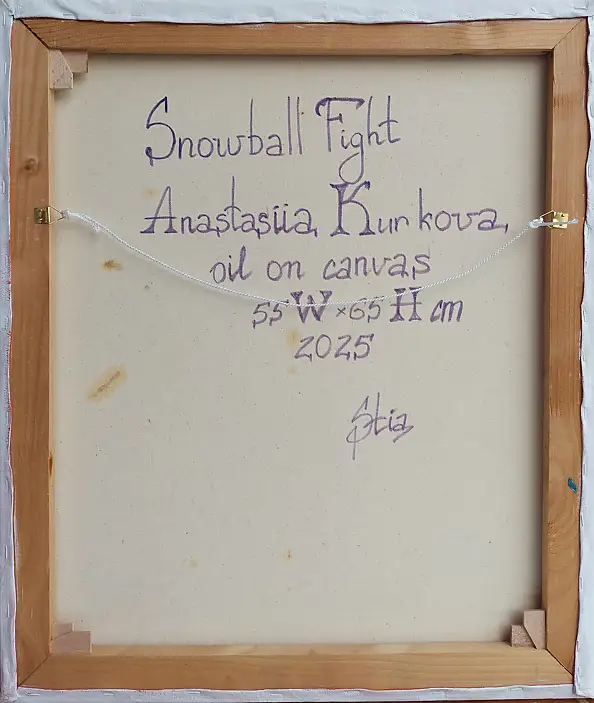 Snowball Fight
Anastasiia Kurkova,
oil on canvas
55 W × 65 H cm
2025
Stia